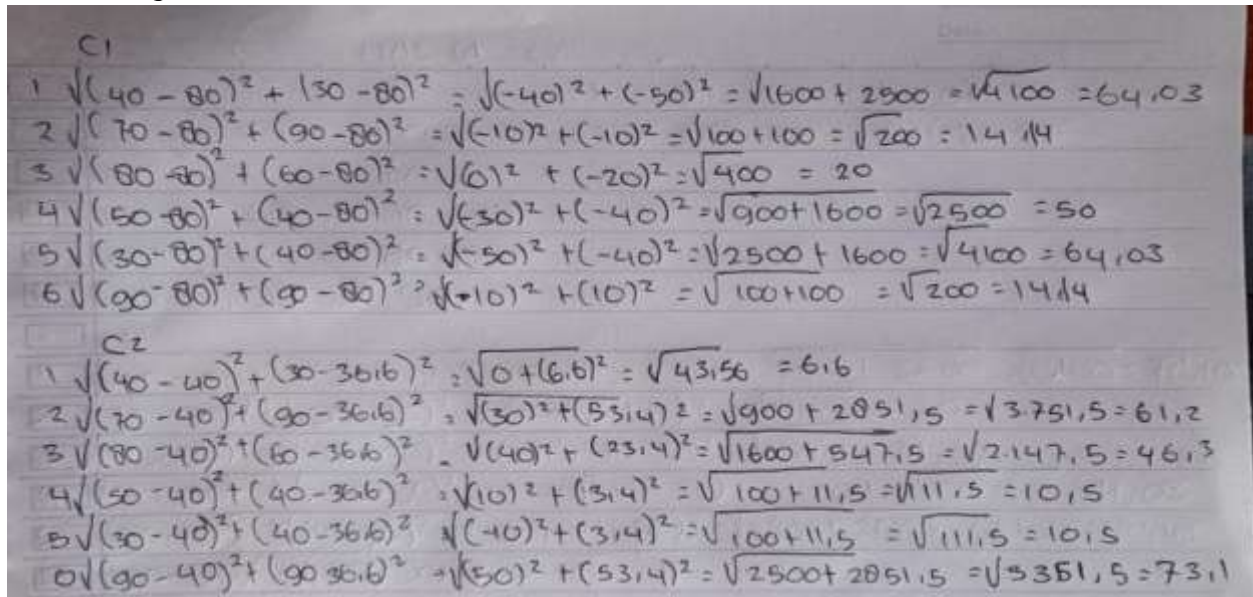 C1
1 √(40 - 80)² + (30 - 80)² = √(-40)² + (-50)² = √1600 + 2500 = √4100 = 64,03
2 √(70 - 80)² + (90 - 80)² = √(-10)² + (-10)² = √100 + 100 = √200 = 14,14
3 √(80 - 80)² + (60 - 80)² = √(0)² + (-20)² = √400 = 20
4 √(50 - 80)² + (40 - 80)² = √(-30)² + (-40)² = √900 + 1600 = √2500 = 50
5 √(30 - 80)² + (40 - 80)² = √(-50)² + (-40)² = √2500 + 1600 = √4100 = 64,03
6 √(90 - 80)² + (90 - 80)² = √(-10)² + (10)² = √100 + 100 = √200 = 14,14
C2
1 √(40 - 40)² + (30 - 36,6)² = √0 + (6,6)² = √43,56 = 6,6
2 √(70 - 40)² + (90 - 36,6)² = √(30)² + (53,4)² = √900 + 2851,5 = √3.751,5 = 61,2
3 √(80 - 40)² + (60 - 36,6)² = √(40)² + (23,4)² = √1600 + 547,5 = √2.147,5 = 46,3
4 √(50 - 40)² + (40 - 36,6)² = √(10)² + (3,4)² = √100 + 11,5 = √111,5 = 10,5
5 √(30 - 40)² + (40 - 36,6)² √(-10)² + (3,4)² = √100 + 11,5 = √111,5 = 10,5
6 √(90 - 40)² + (90 36,6)² = √(50)² + (53,4)² = √2500 + 2851,5 = √5351,5 = 73,1